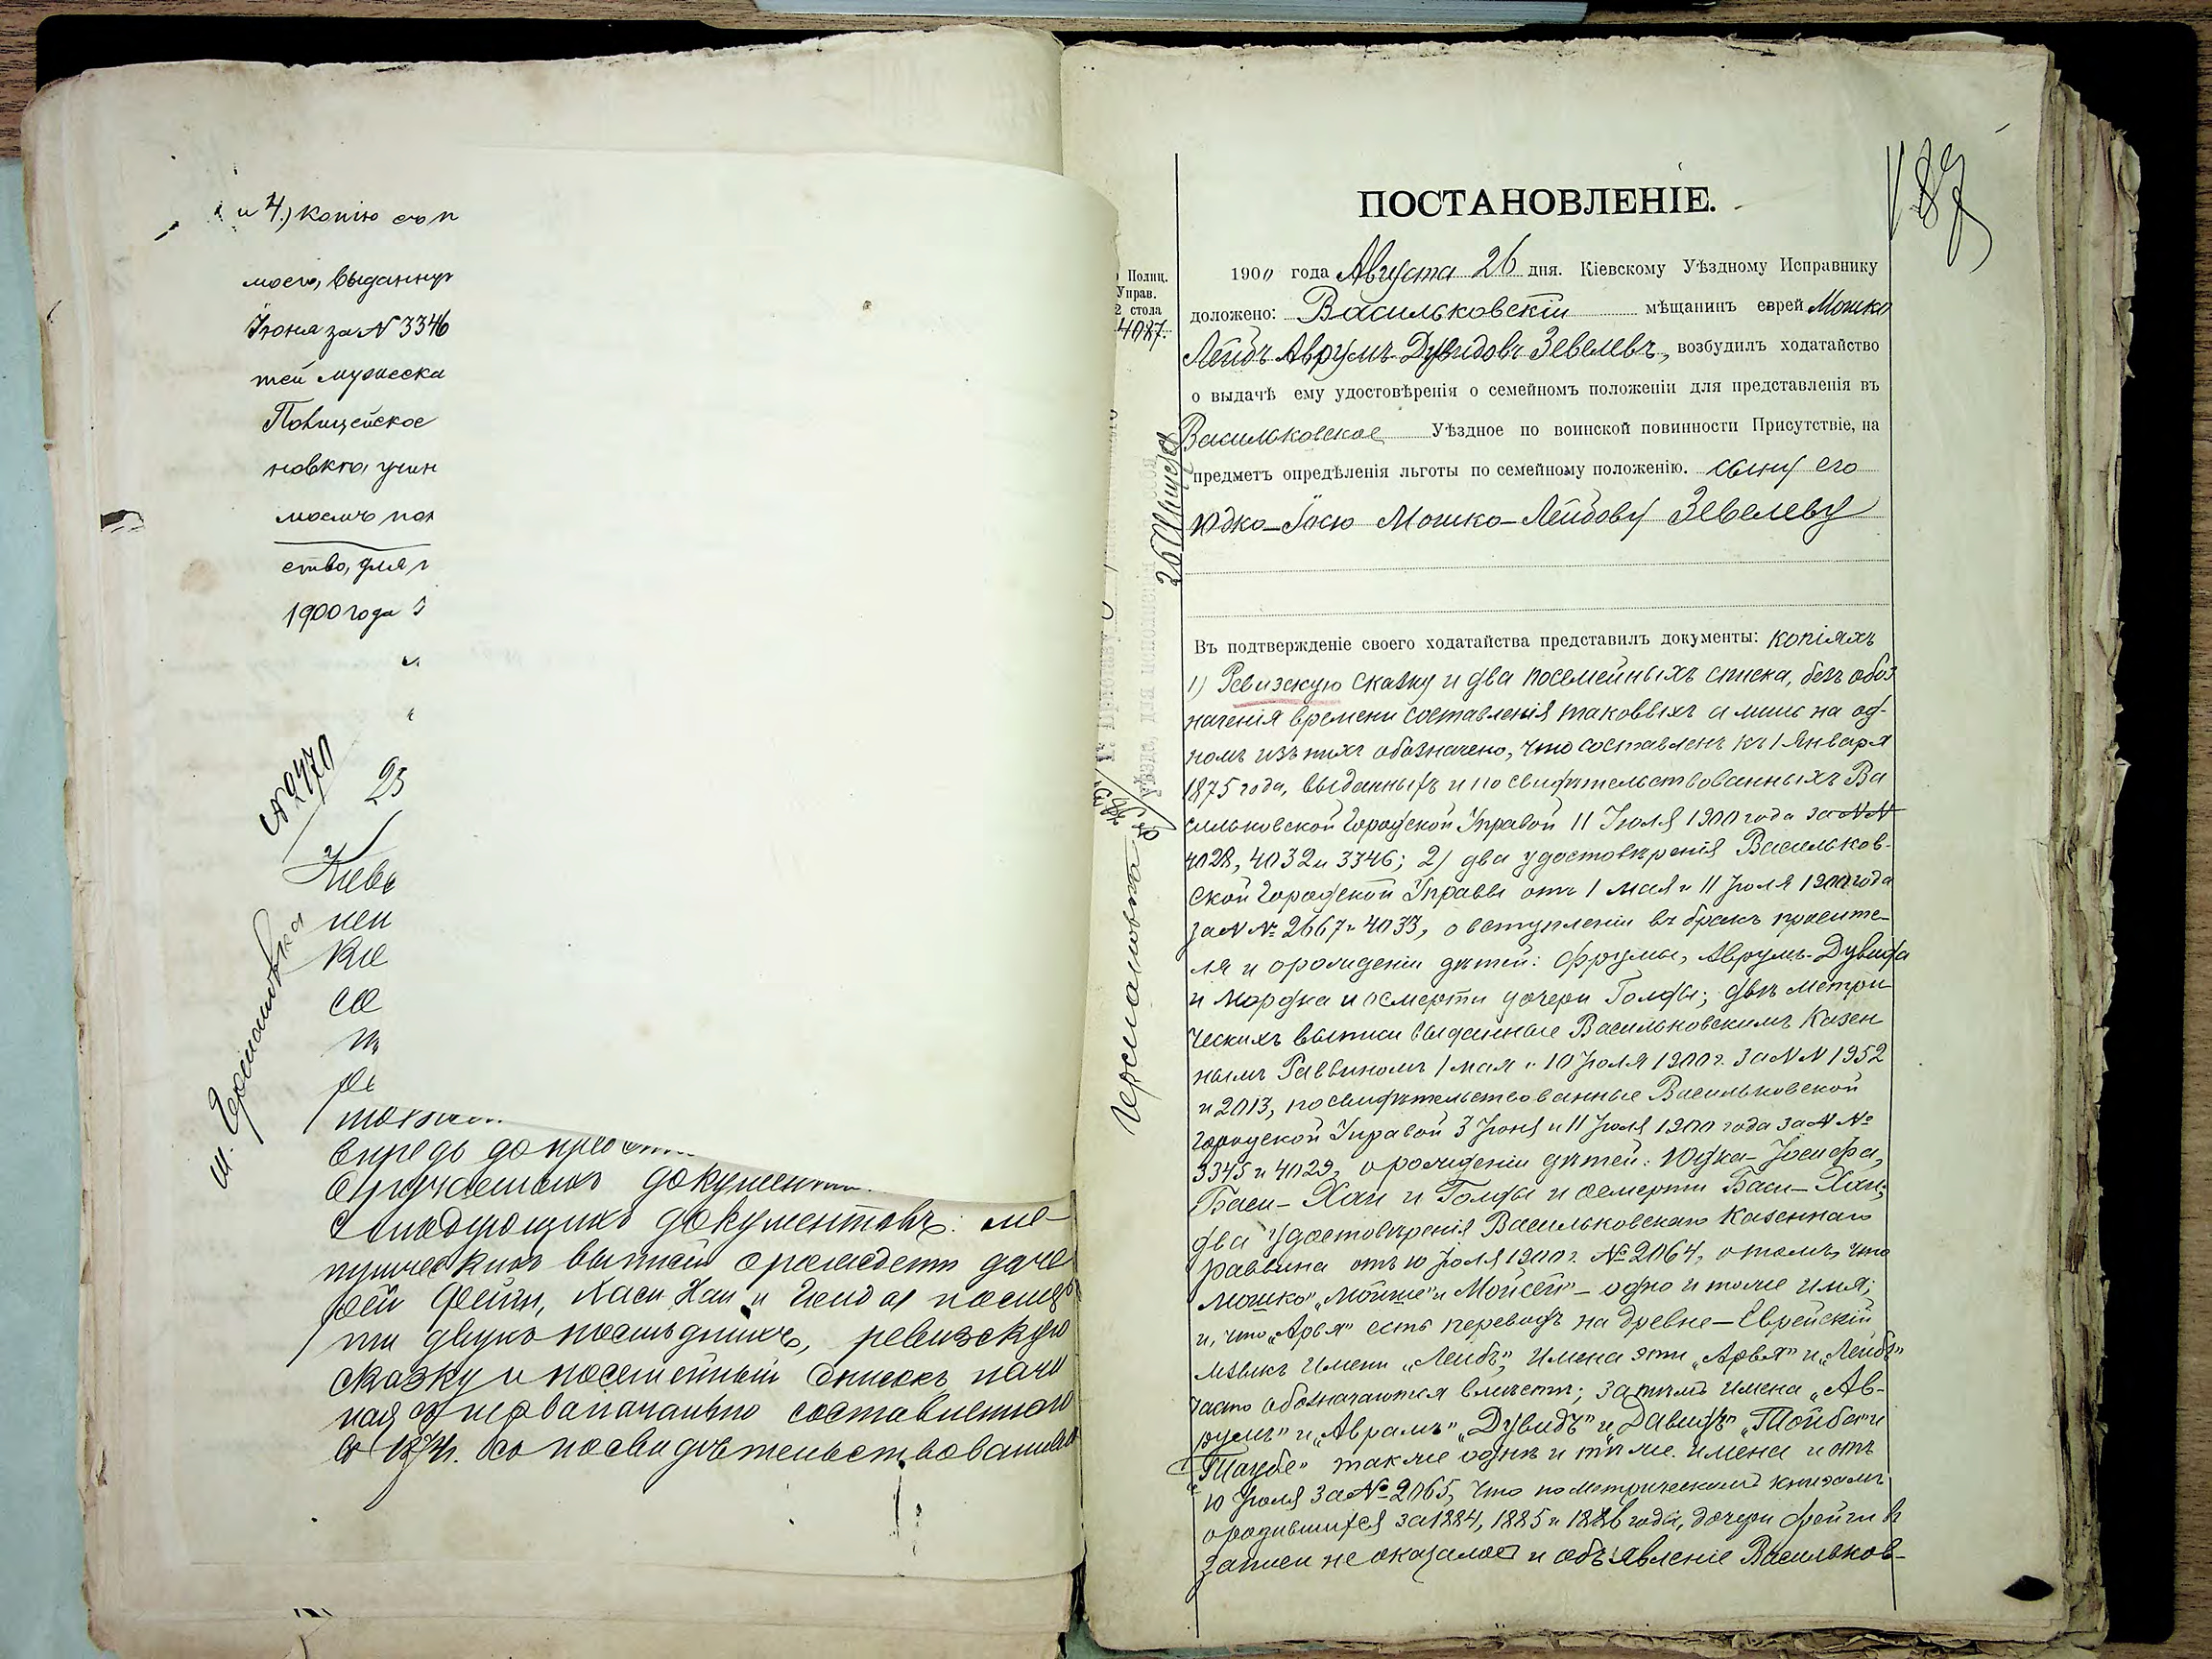 и 4.) копію съ п
моего, выданную
Іюня за N 3346
тей мужеска
Полицейское
новкго, учин
моимъ
ство, для
1900 года
N 2470
25
м. Германовка
Кіев
впредь до
документ
слѣдующихъ документовъ: ме-
трическихъ выписи о рожденіи доче
рей Фейги, Хаси Хаи и
ти двухъ послѣднихъ, ревизскую
сказку и посемейный списокъ
первапачально составленнаго
въ 1874г. со посвидѣтельствованіемъ
187
ПОСТАНОВЛЕНІЕ.
Полиц.
Управ.
2 стола
4087.
1900 года Августа 26 дня. Кіевскому Уѣздному Исправнику
доложено: Васильковскій мѣщанинъ еврей Мошко
Лейбъ Аврумъ-Дувидовъ Зевелевъ, возбудилъ ходатайство
о выдачѣ ему удостовѣренія о семейномъ положеніи для представленія въ
Васильковское Уѣздное по воинской повинности Присутствіе, на
предметъ опредѣленія льготы по семейному положенію. сыну его
Юдко-Іосю Мошко-Лейбову Зевелеву
26 Августа
Германовка
Въ подтвержденіе своего ходатайства представилъ документы: копіяхъ
1) Ревизскую сказку и два посемейныхъ списка, безъ обоз
наченія времени составленія таковыхъ и лишь на од-
номъ изъ нихъ обозначено, что составленъ къ 1 Января
1875 года, выданныхъ и посвидѣтельствованныхъ Ва
сильковской Городской Управой 11 Іюля 1900 года за N N
4028, 4032 и 3346; 2) два удостовѣренія Васильков-
ской Городской Управы отъ 1 мая и 11 Іюля 1900 года
за N № 2667 и 4033, о вступленіи въ бракъ просите-
ля и о рожденіи дѣтей: Фрумы, Аврумъ-Дувида
и Мордка и о смерти дочери Голды; двѣ метри
ческихъ выписи выданные Васильковскимъ Казен
нымъ Раввиномъ 1 мая и 10 Іюля 1900 г. за N N 1952
и 2013, посвидѣтельствованные Васильковской
Городской Управой 3 Іюня и 11 Іюля 1900 года за N №
3345 и 4029, о рожденіи дѣтей: Юдка-Іосифа,
Баси-Хаи и Голды и о смерти Баси-Хаи;
два удостовѣренія Васильковскаго Казеннаго
раввина отъ 10 Іюля 1900 г. № 2064, о томъ, что
„Мошко" „Мойше" и Мойсей" - одно и тоже имя;
и, что „Арья" есть переводъ на древне-Еврейскій
языкъ имени „Лейбъ", имена эти „Арья" и „Лейбъ"
часто обозначаются вмѣстѣ; за тѣмъ имена „Ав-
румъ" и „Аврамъ" „Дувидъ" и „Давидъ" „Тойба" и
„Таубе" также однѣ и тѣ же имена и отъ
10 Іюля за № 2065, что по метрическимъ книгамъ
о родившихся за 1884, 1885 и 1886 годы, дочери Фейги
записи не оказалось и объявленіе Васильков-